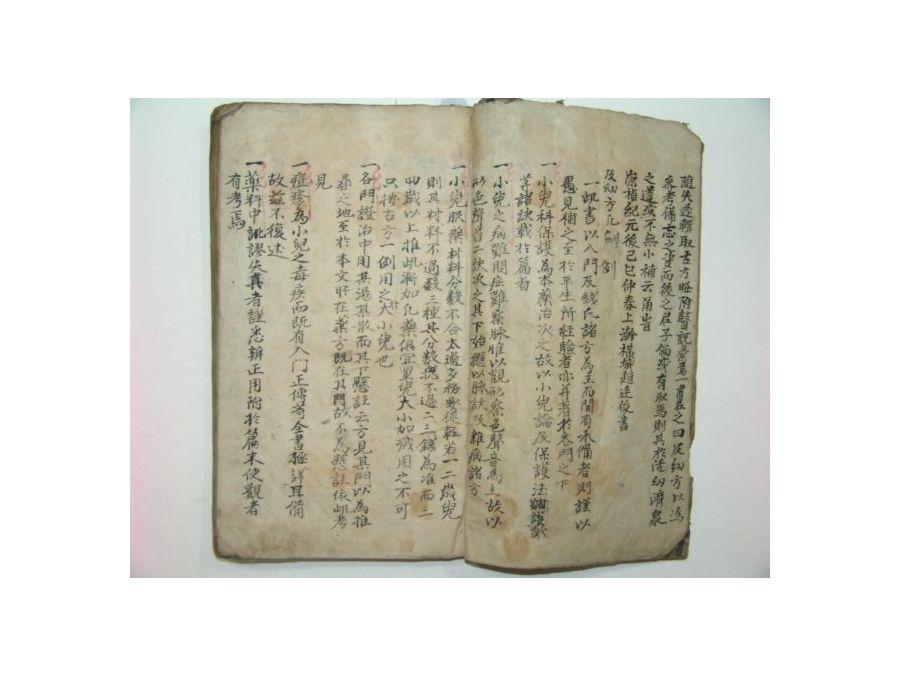 隨失遂輯取古方略附瞽説彙爲一書在之曰及幼方以爲
參考備忘之資而後之君子倘或有取焉則其於活幼濟衆
之道或不無小補云甭旹
崇禎紀元後己巳仲春上澣橫城趙廷俊書
及幼方凡例
一此書以入門及錢氏諸方為主而間有未備者則謹以
愚見補之至於平生所經驗者亦并著於各門之下
一小兒科保護為本藥治次之故以小兒論及保護法調護歌
等諸訣載於篇首
一小兒之病難問症難察脉惟以觀形察色聲音為主故以
形色聲音二訣次之其下始繼以脉訣及雜病諸方
一小兒服藥材料分數不合太過多務要從輕若一二歲兒
則其材料不過數三種其分數視不過二三錢為准而三
四歲以上推此漸加凡藥俱宜量兒大小加减用之不可
只撈古方一例用之大小兒也
一各門證治中用某湯某散而其下懸註云方見某門以為推
尋之地至於本文所在藥方既在其門故不為懸註依此考
見
一痘疹為小兒之毒疾而既有入門正傳等全書極詳且備
故玆不復述
一藥料中訛謬失真者謹悉辨正用附於篇末使觀者
有考焉